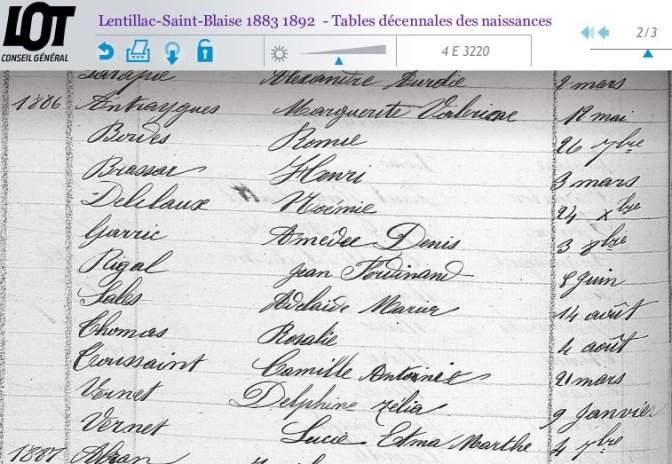 LOT
CONSEIL GÉNÉRAL
Lentillac-Saint-Blaise 1883 1892 - Tables décennales des naissances
4 E 3220
2/3
Alexandre Aurélie 2 mars
1886 Antraygues Marguerite 12 mai
Bordes 26 7bre
Brassac Henri 3 mars
Noémie 24 xbre
Garric Amédée Denis 3 8bre
Rigal Jean Ferdinand 8 juin
Sales Adelaide Maria 14 août
Thomas Rosalie 4 août
Toussaint Camille Antoine 21 mars
Vernet Delphine Zélia 9 Janvier
Vernet Lucie Etma Marthe 4 7bre
1887